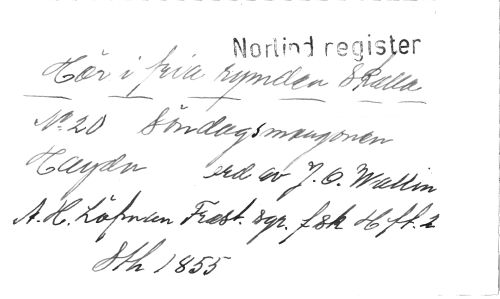 Norlind register
Hör i fria rymden skalla
No 20 Söndagsmorgonen
Haydn ord av J. O. Wallin
A. H. Löfman Frest. sgr. f sk Hft. 2
Sth 1855